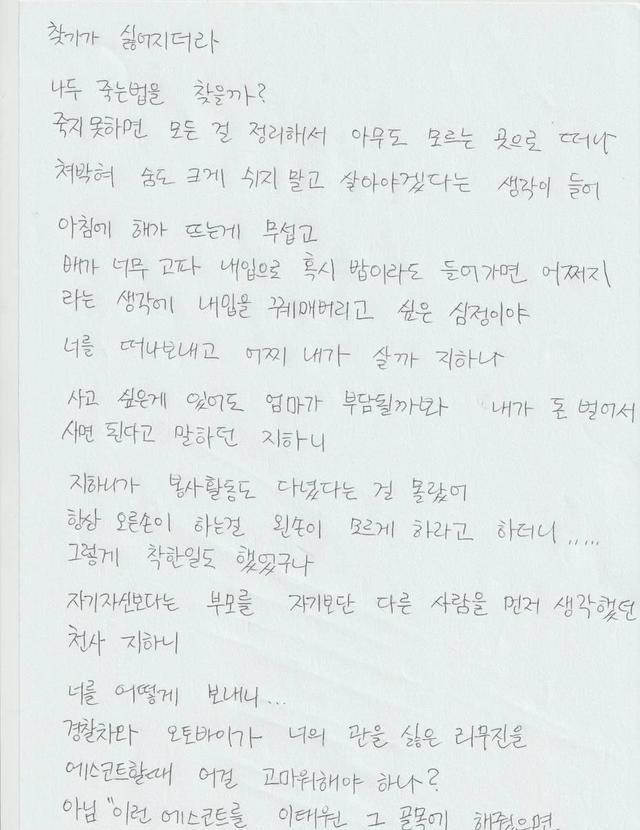 찾기가 싫어지더라
나두 죽는법을 찾을까?
죽지 못하면 모든 걸 정리해서 아무도 모르는 곳으로 떠나
쳐박혀 숨도 크게 쉬지 말고 살아야겠다는 생각이 들어
아침에 해가 뜨는게 무섭고
배가 너무 고파 내입으로 혹시 밥이라도 들어가면 어쩌지
라는 생각에 내입을 꿰매버리고 싶은 심정이야
너를 떠나보내고 어찌 내가 살까 지하나
사고 싶은게 있어도 엄마가 부담될까봐 내가 돈 벌어서
사면 된다고 말하던 지하니
지하니가 봉사활동도 다녔다는 걸 몰랐어
항상 오른손이 하는걸 왼손이 모르게 하라고 하더니.....
그렇게 착한일도 했었구나
자기자신보다는 부모를 자기보단 다른 사람을 먼저 생각했던
천사 지하니
너를 어떻게 보내니...
경찰차와 오토바이가 너의 관을 실은 리무진을
에스코트할때 이걸 고마워해야 하나?
아님 "이런 에스코트를 이태원 그 골목에 해줬으면